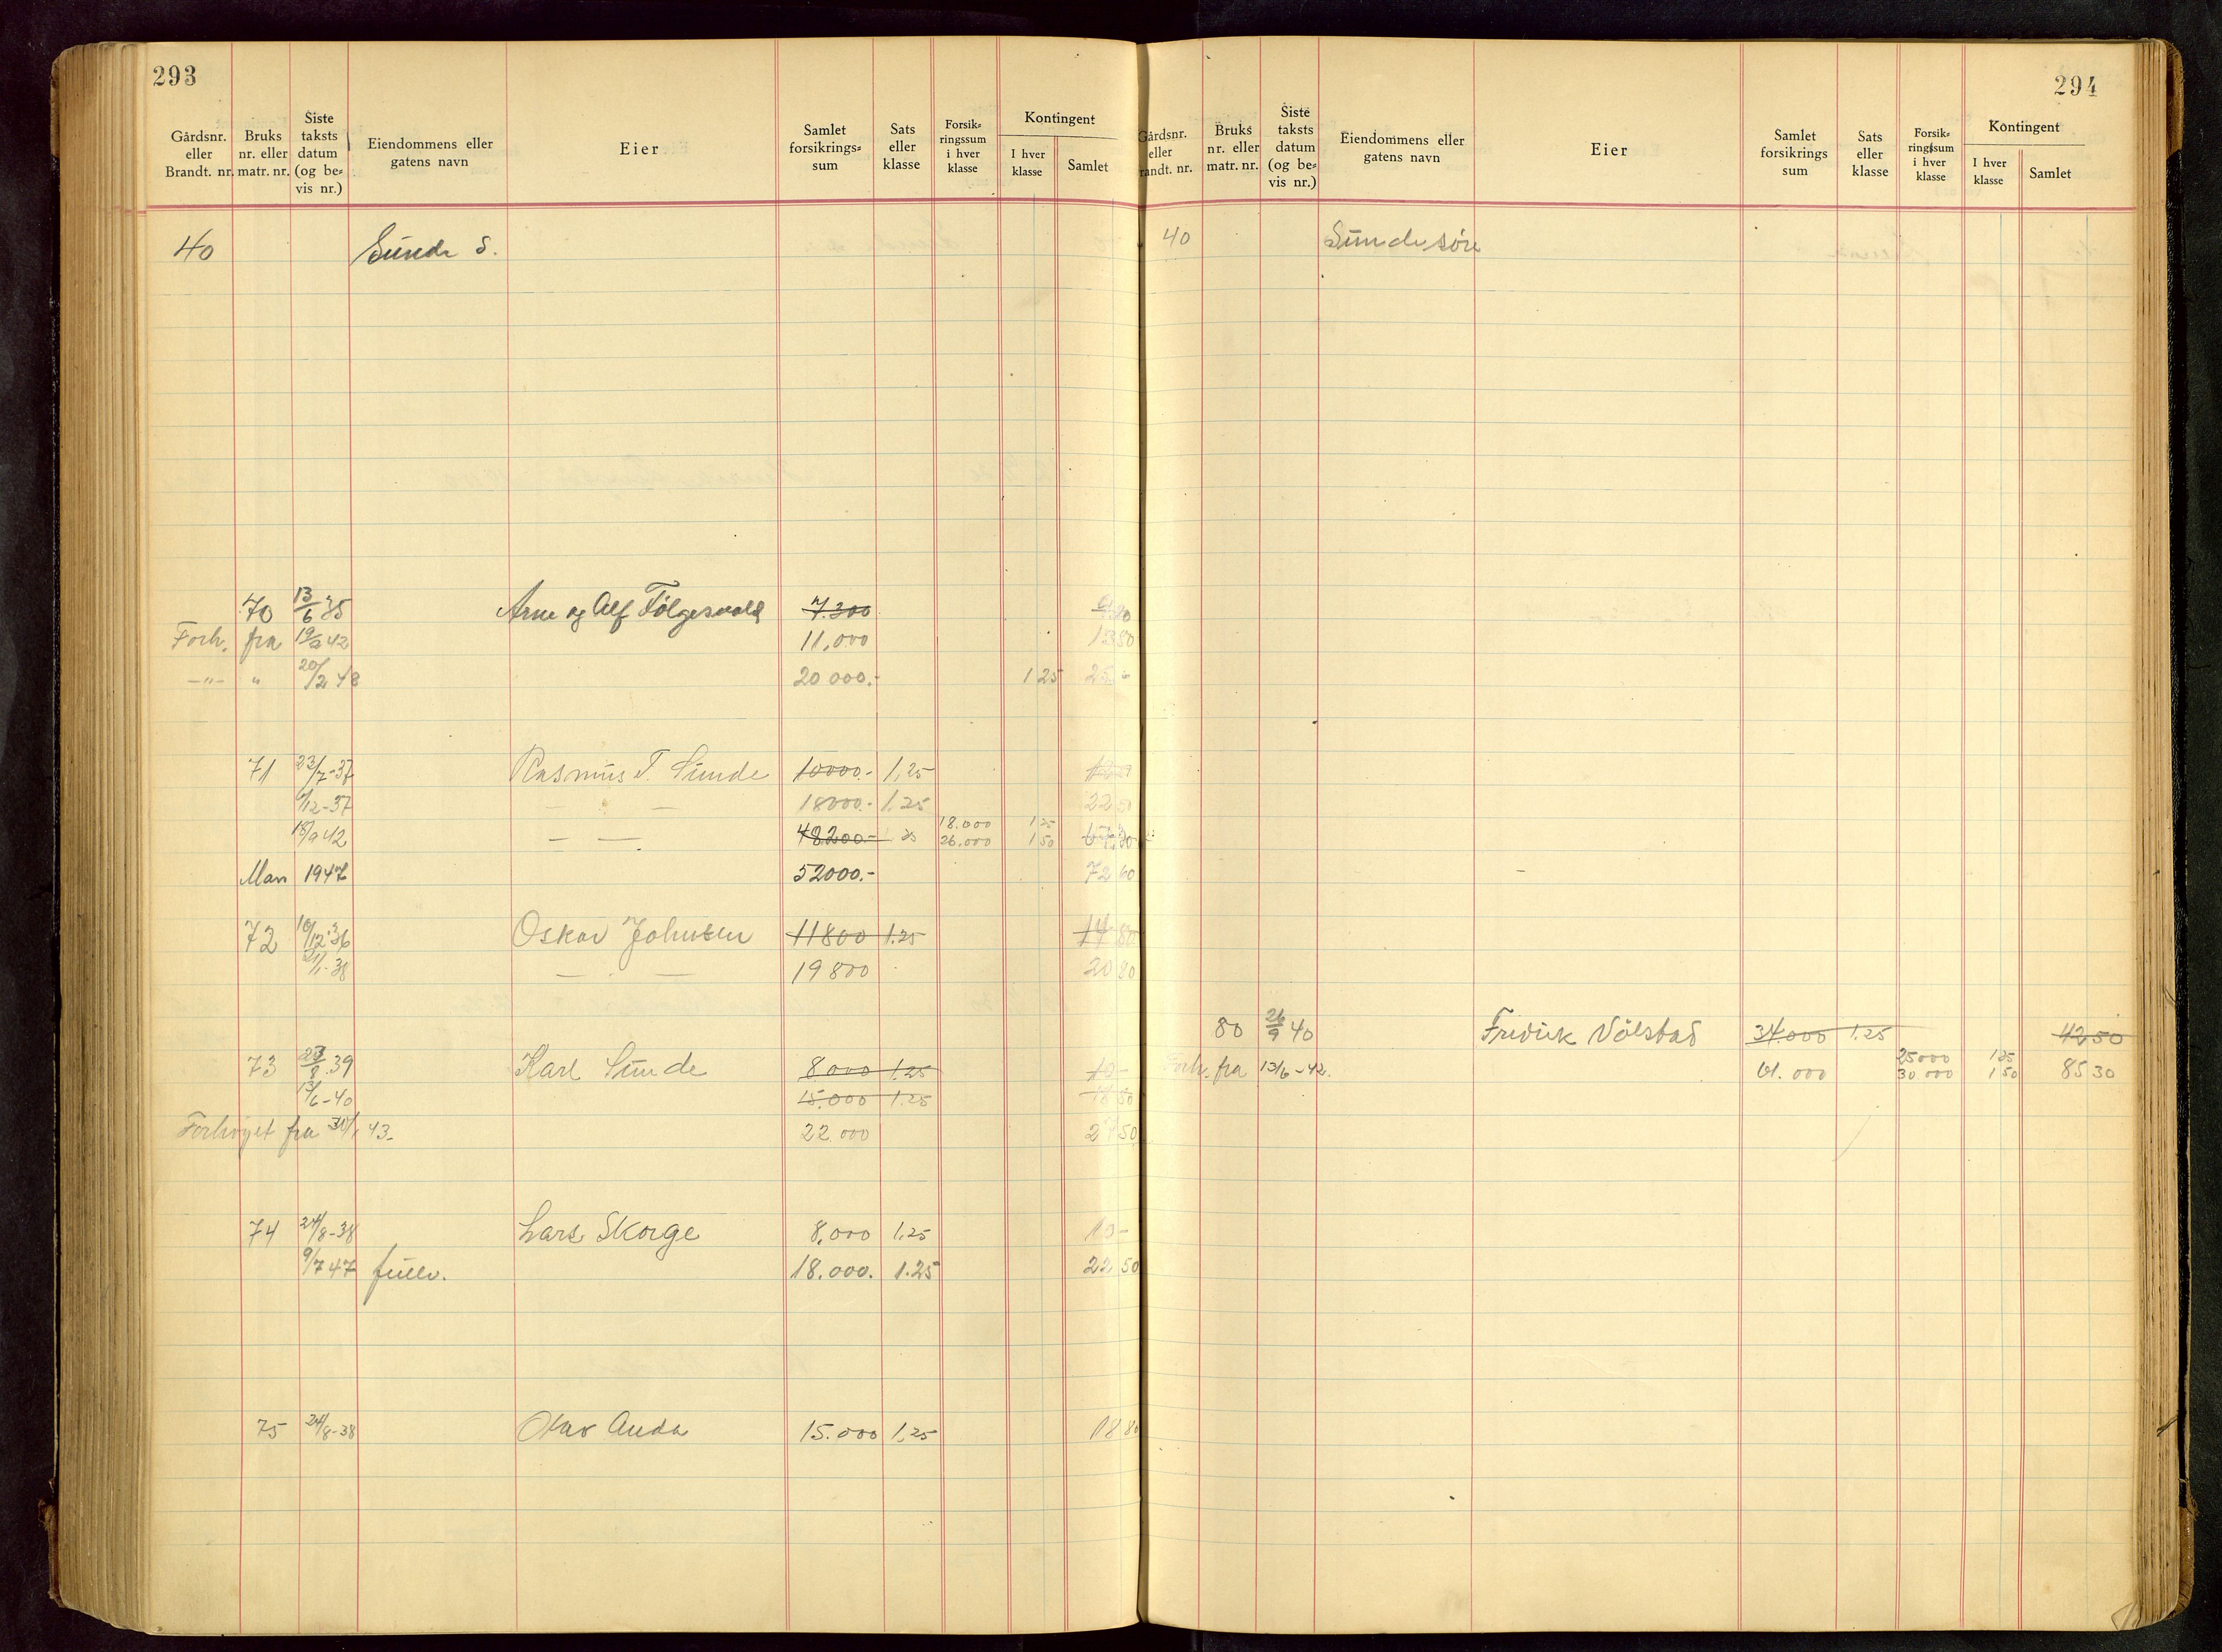 293
Gårdsnr. eller Brandt. nr. Bruks nr. eller matr. nr. Siste taksts datum (og bevis nr.) Eiendommens eller gatens navn Eier Samlet forsikringssum Sats eller klasse Forsikringssum i hver klasse Kontingent I hver klasse Samlet
40 Sunde S.
70 13/6 35 Arne og Alf Tölgesvold 7.300
Forh. fra 19/9 42 11.000 13 80
-"- " 20/2 48 20 000.- 1 25 25 -
71 23/7-37 Rasmus T. Sunde 10000.- 1,25
/12-37 — — 18000.- 1.25 22 50
18/9 42 — — 48200.- 18.000 1 25
26.000 1 50
Mars 1947 52000.- 72 60
72 10/12-36 Oskar Johnsen 11800 1.25 14 80
21/1-38 — — 19800 20 80
73 23/8.39 Karl Sunde 8000 1.25 10 -
13/6-40 15.000 1.25 18 50
Forhøyet fra 30/1 43- 22.000 27 50
74 24/8-38 Lars Skorge 8.000 1,25 10 -
9/7 47 fullv. 18.000. 1.25 22 50
75 24/8-38 Olav Auda 15.000 1,25 18 80
294
Gårdsnr. eller randt. nr. Bruks nr. eller matr. nr. Siste taksts datum (og bevis nr.) Eiendommens eller gatens navn Eier Samlet forsikrings sum Sats eller klasse Forsikringssum i hver klasse Kontingent I hver klasse Samlet
40 Sunde søre
80 26/9 40 Fredrik Völstad 34.000 1.25 42 50
Forh. fra 13/6-42. 61.000 25000 1 25 85 30
30 000 1 50